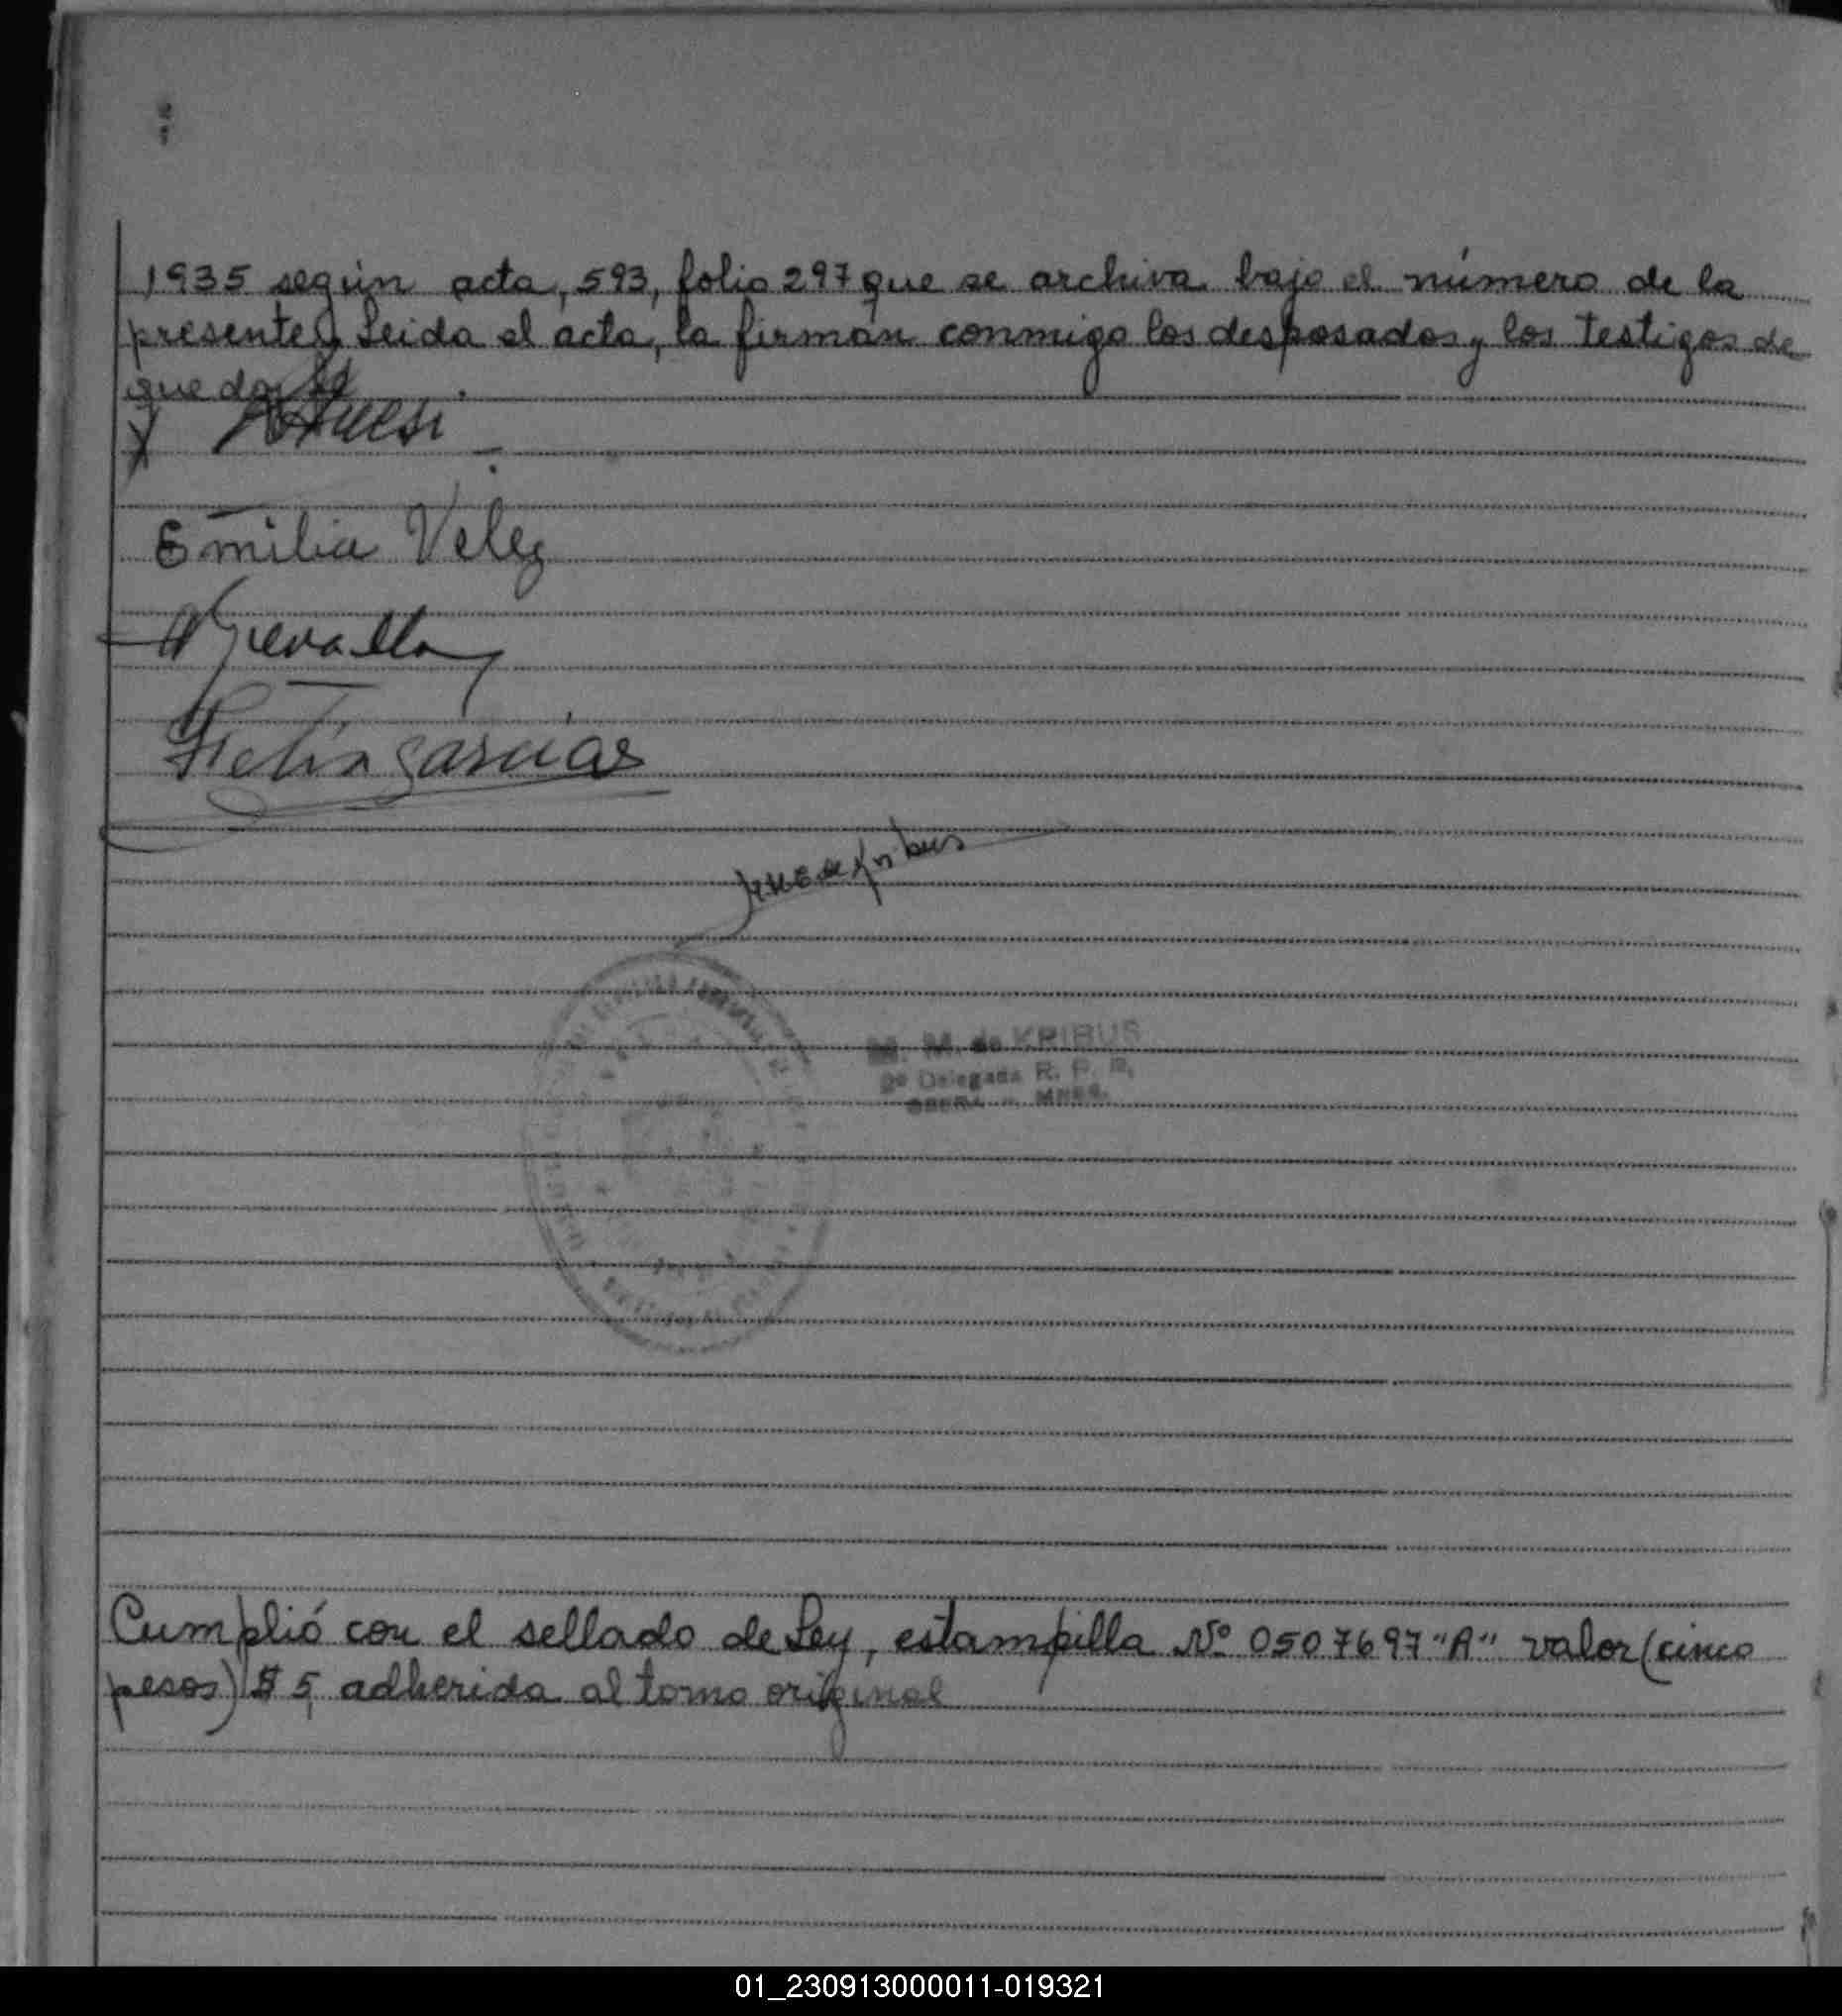 1935 según acta, 593, folio 297 que se archiva bajo el número de la
presente. Leida el acta, la firman conmigo los desposados y los testigos de
que doy fé
Emilia Velez
M. M. de KRIBUS
Delegada R. P. P.
OBERA - MNES.
Cumplió con el sellado de Ley, estampilla Nº 0507697 "A" valor (cinco
pesos) $ 5, adherida al tomo original
01_230913000011-019321